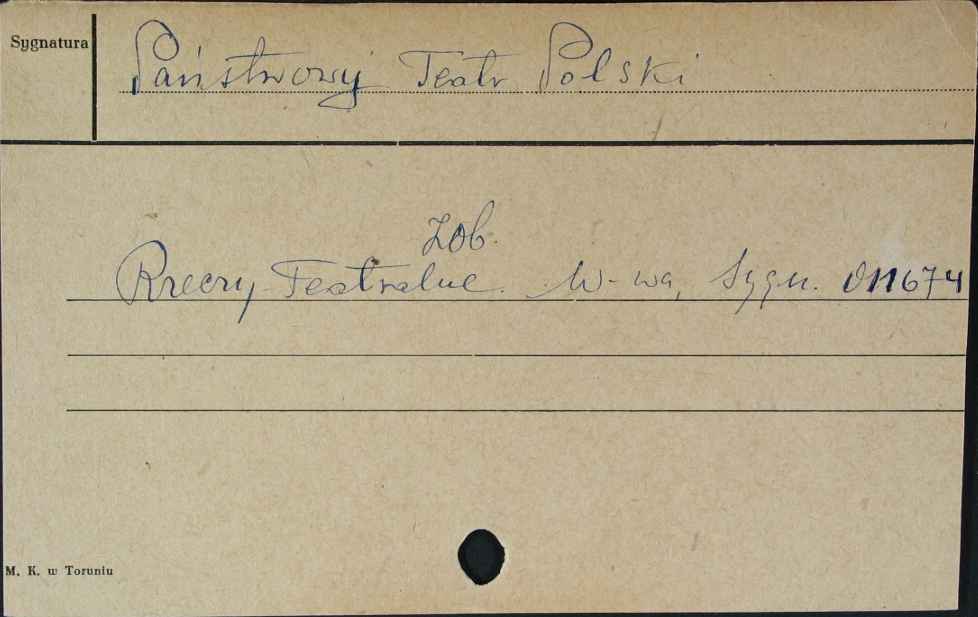 Sygnatura
Państwowy Teatr Polski
zob.
Rzeczy Teatralne. W-wa, Sygn. 011674
M. K. w Toruniu